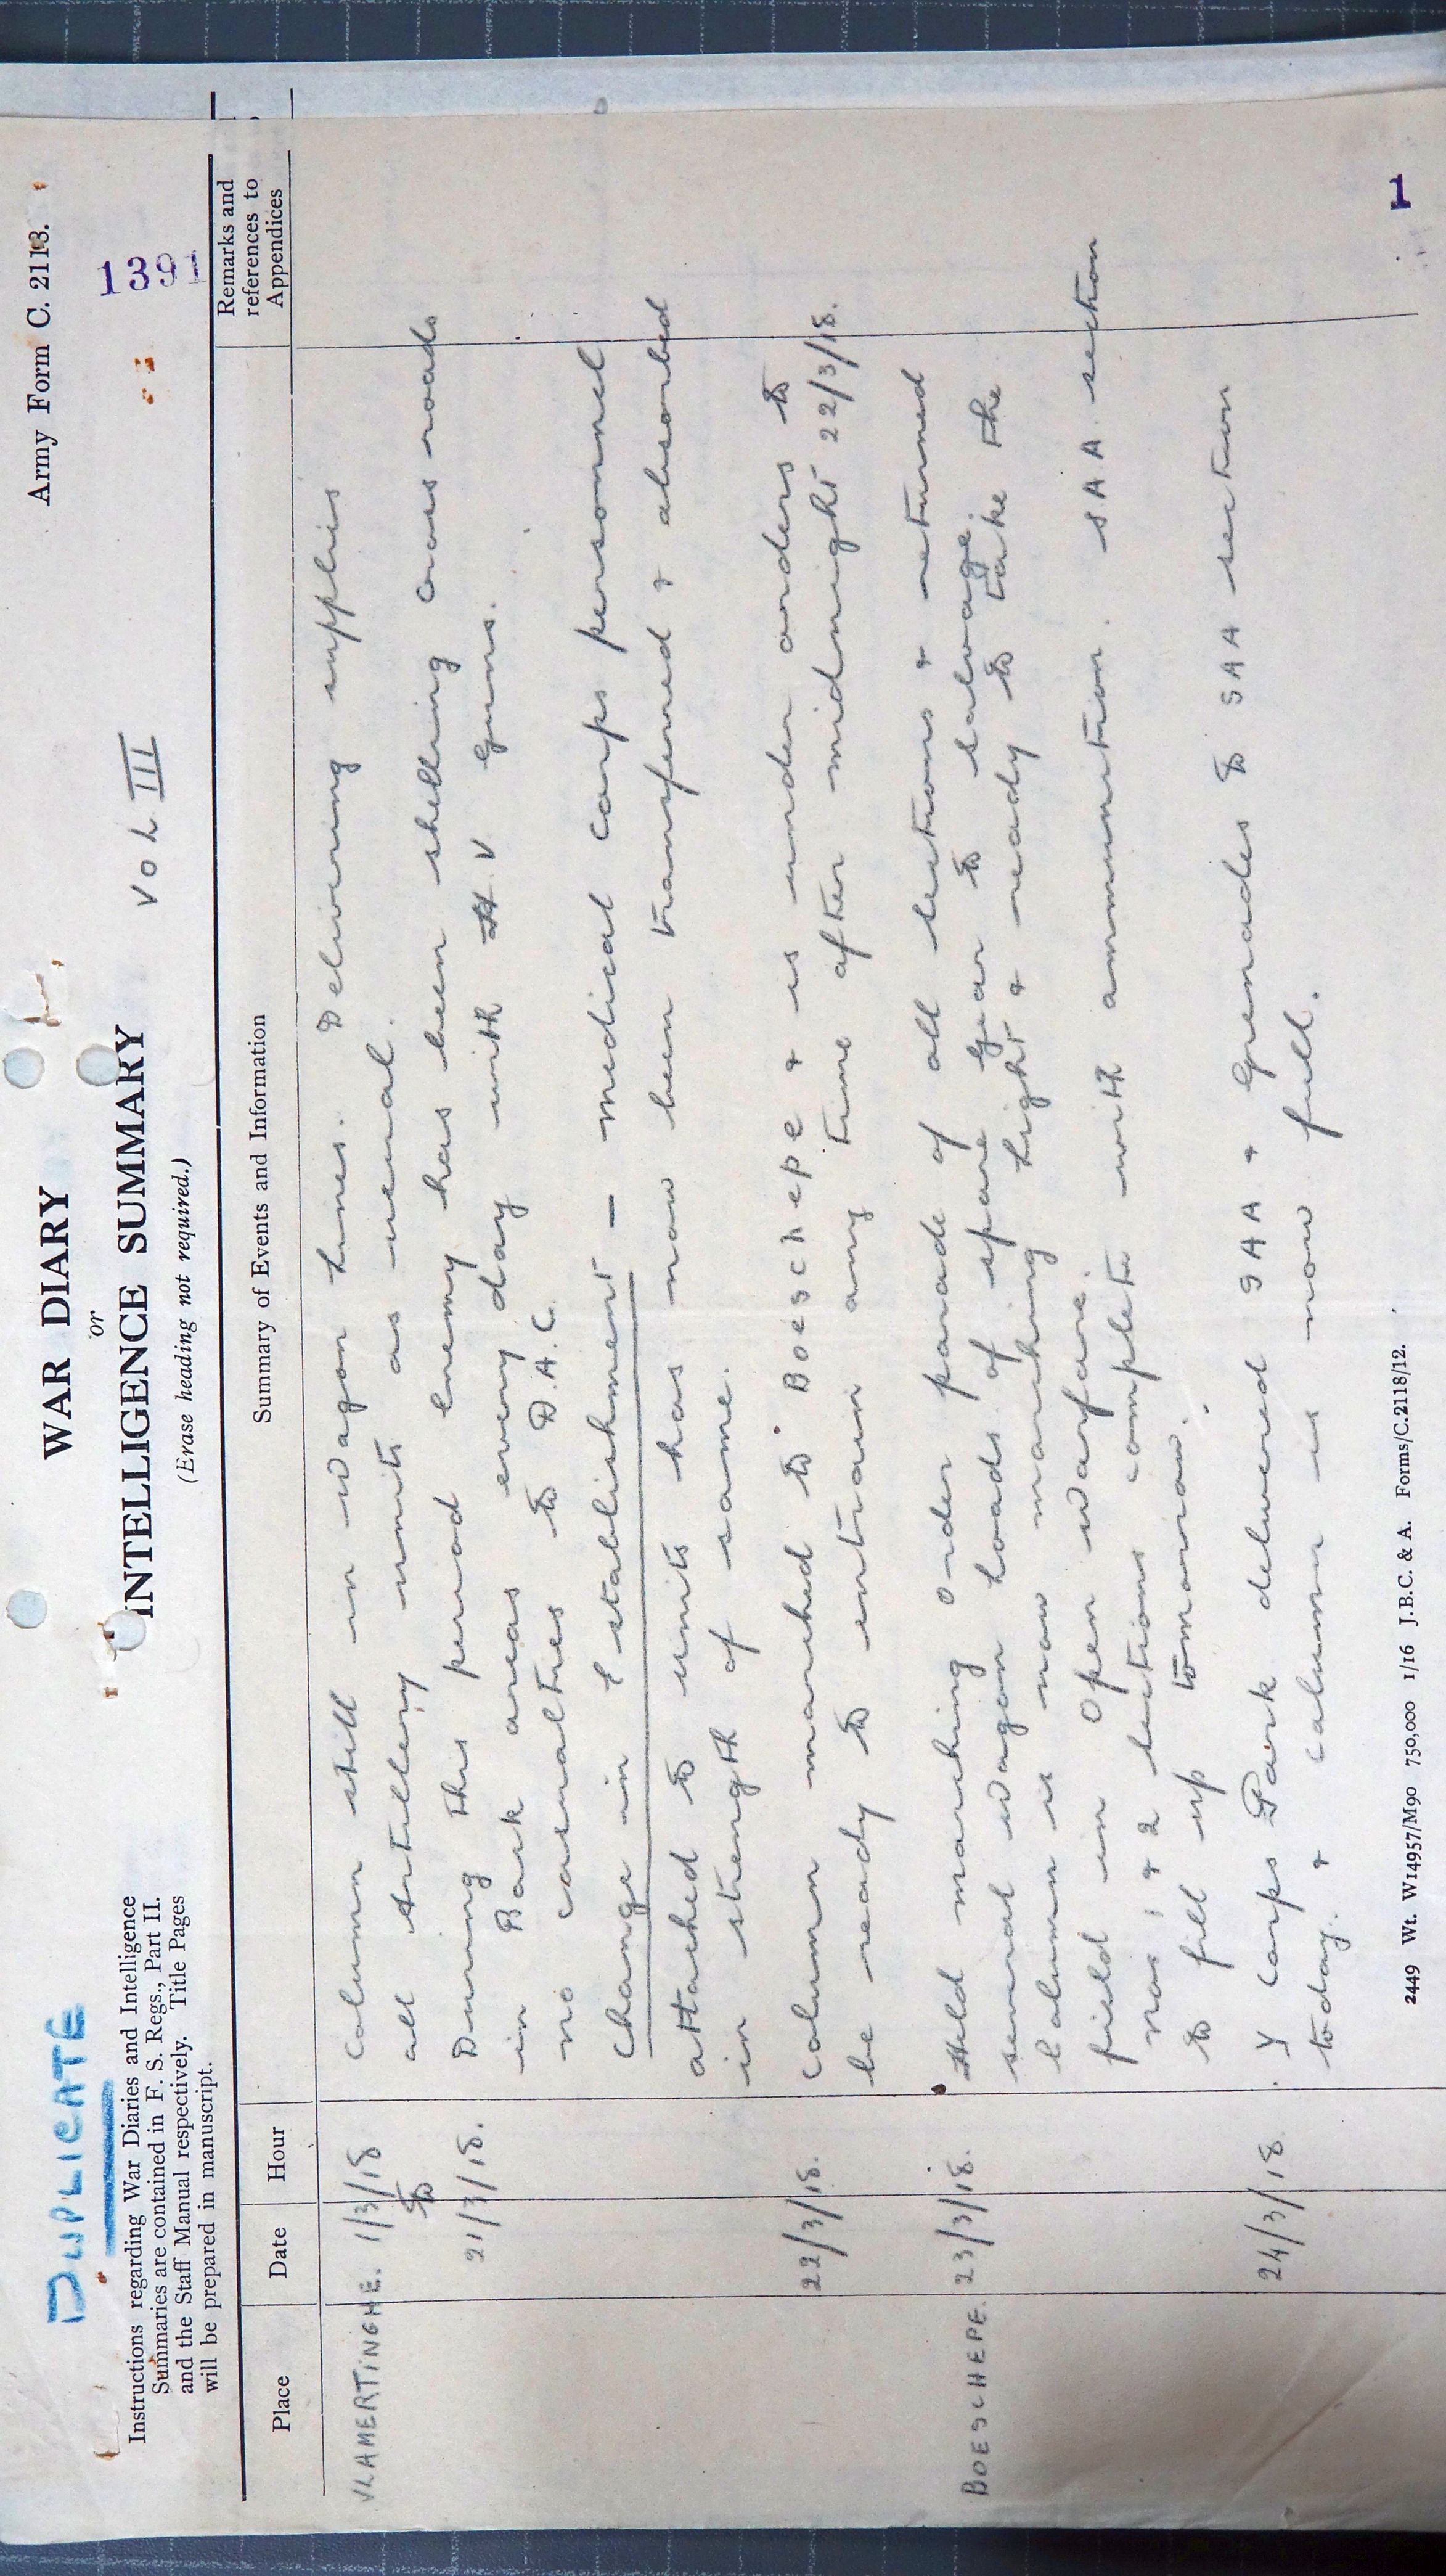 DUPLICATE
Army Form C. 2118.
WAR DIARY
or
INTELLIGENCE SUMMARY
(Erase heading not required.)
VOL III
1391
Instructions regarding War Diaries and Intelligence
Summaries are contained in F. S. Regs., Part II.
and the Staff Manual respectively. Title Pages
will be prepared in manuscript.
Place Date Hour Summary of Events and Information Remarks and references to Appendices
VLAMERTINGHE. 1/3/18 Column still in Wagon Lines. Delivering supplies
to all Artillery units as usual.
21/3/18. During this period Enemy has been shelling cross roads
in Back areas every day with H.V Guns.
no casualties to D.A.C.
Change in Establishment — medical corps personnel
attached to units has now been transferred & absorbed
in strength of same.
22/3/18. Column marched to Boeschepe & is under orders to
be ready to entrain any time after midnight 22/3/18.
BOESCHEPE. 23/3/18. Held marching order parade of all sections & returned
several wagon loads of spare gear to salvage.
Column is now marching light & ready to take the
field in Open warfare.
Nos 1 & 2 Sections complete with ammunition. SAA section
to fill up tomorrow.
24/3/18. Y Corps Park delivered SAA & Grenades to SAA section
today. & column is now full.
2449 Wt. W14957/M90 750,000 1/16 J.B.C. & A. Forms/C.2118/12.
1